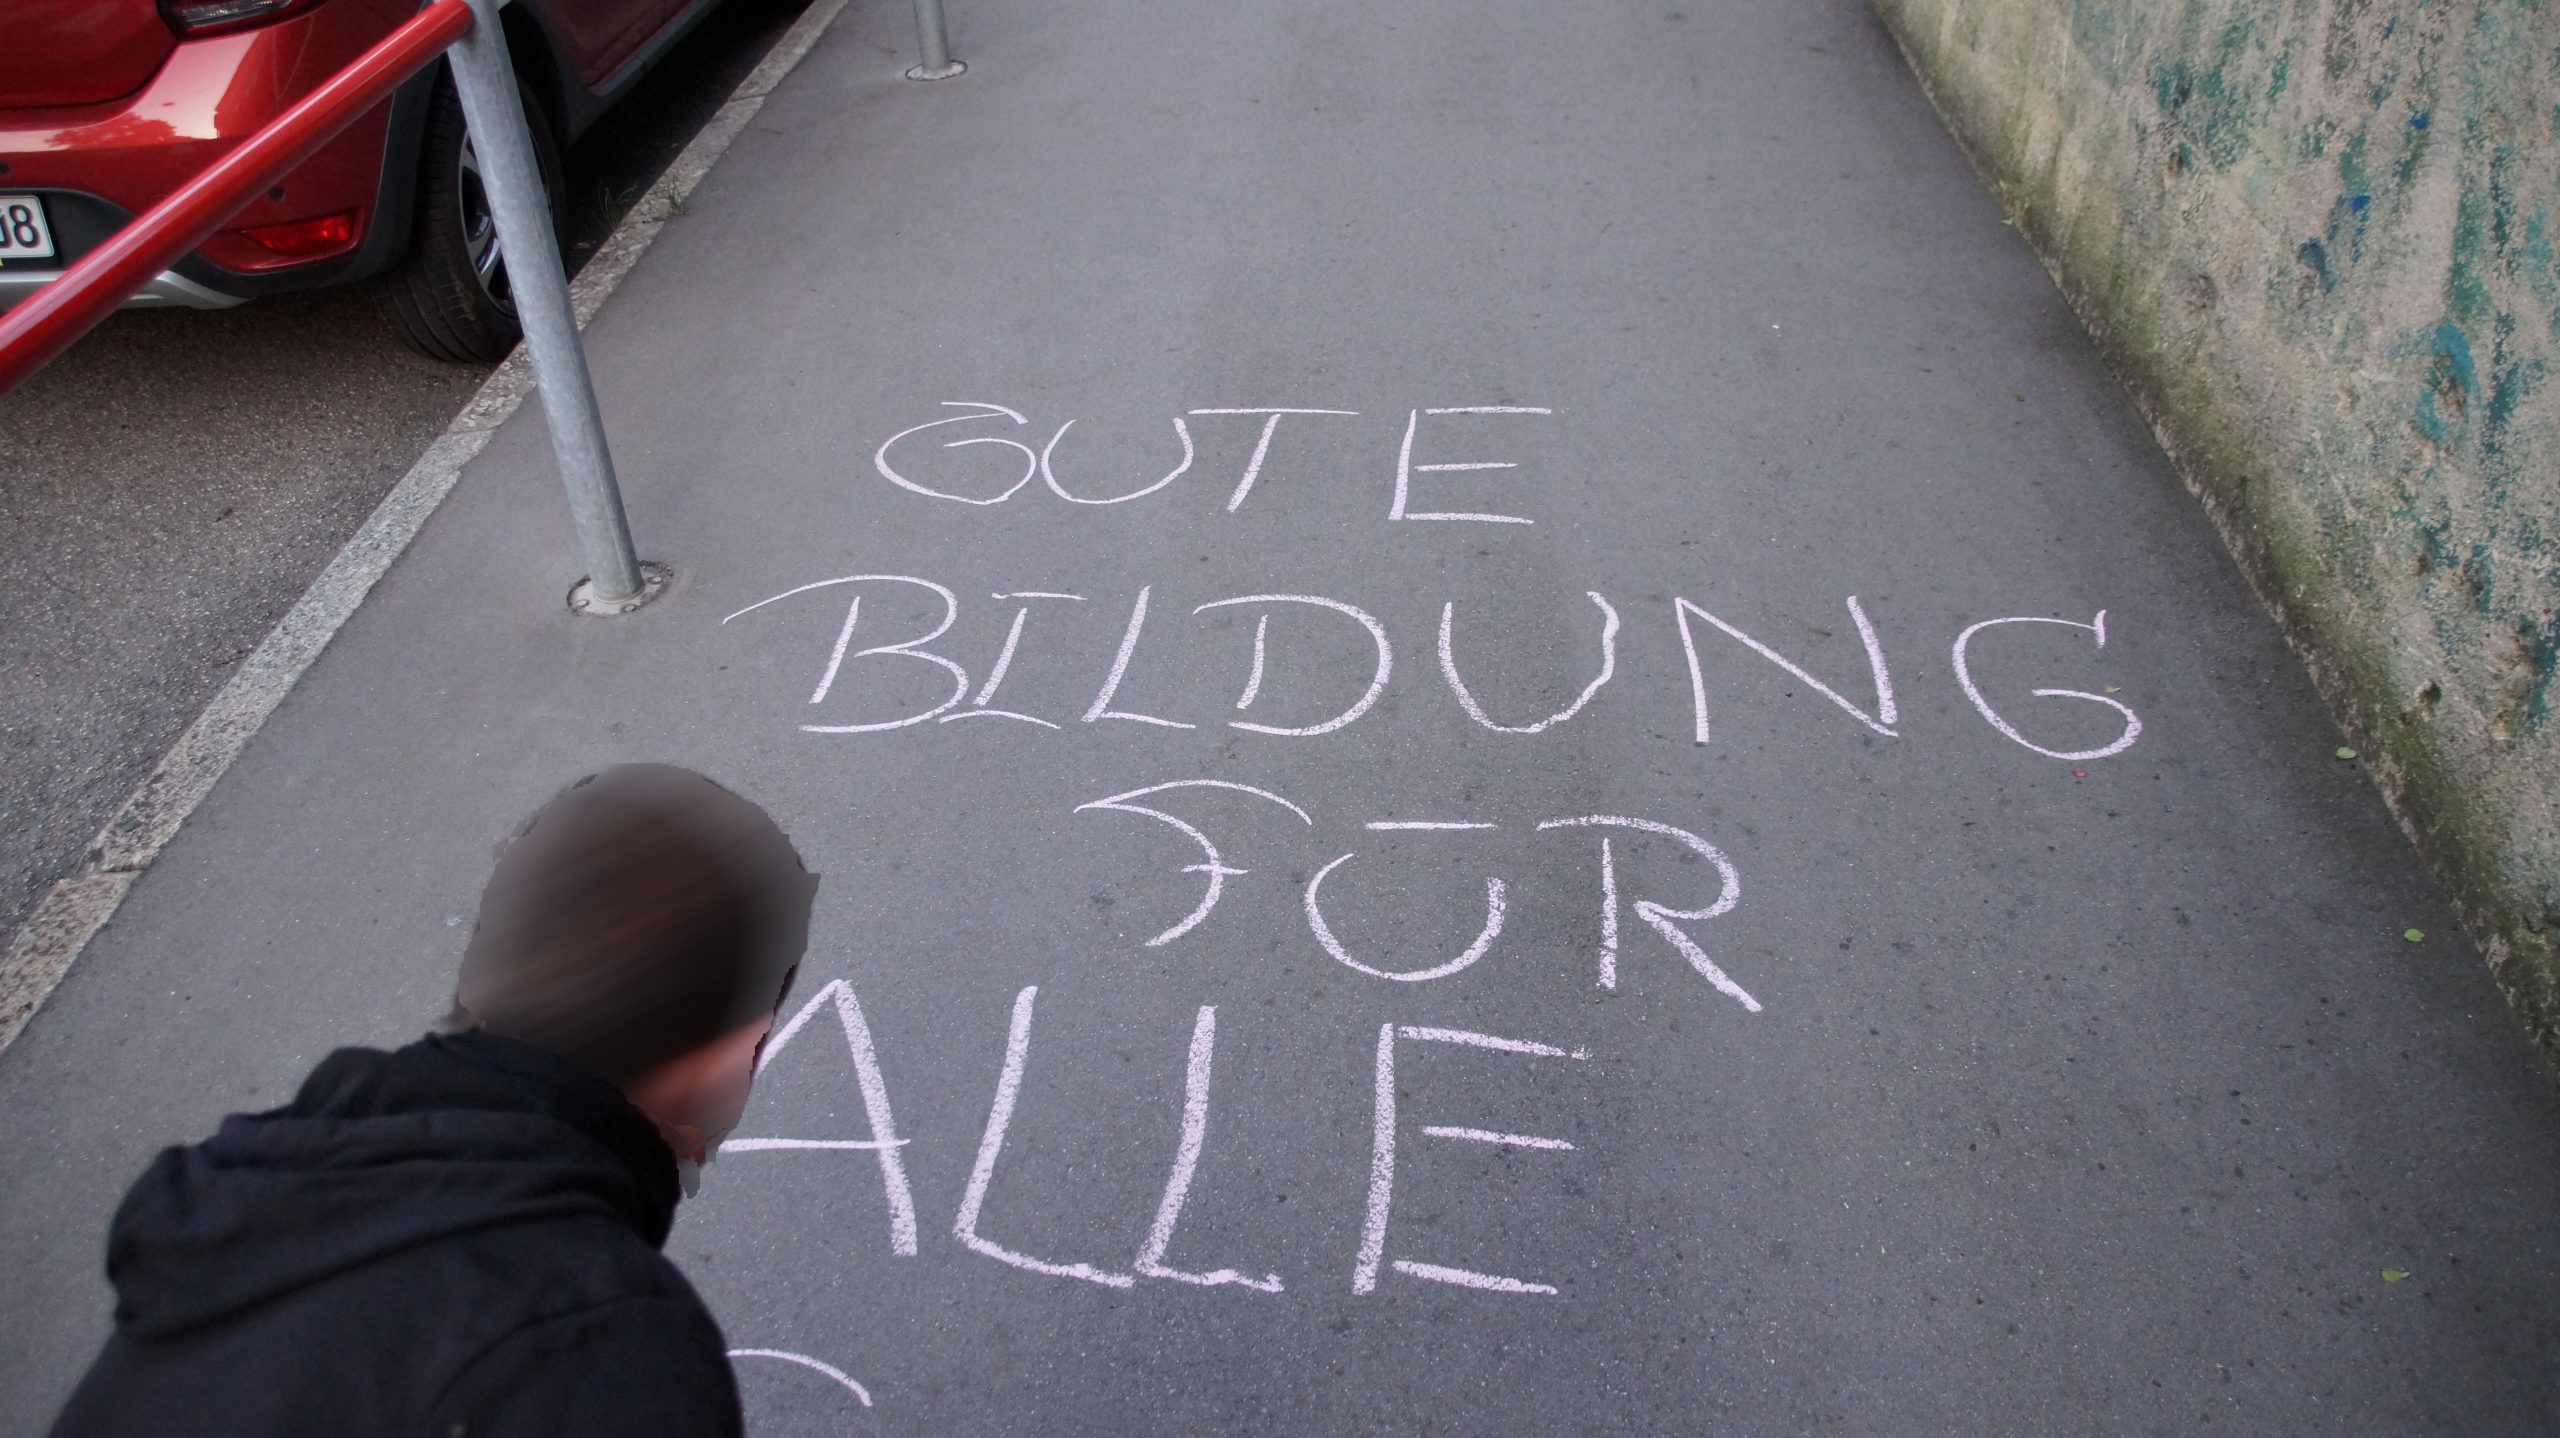 GUTE
BILDUNG
FÜR
ALLE
08